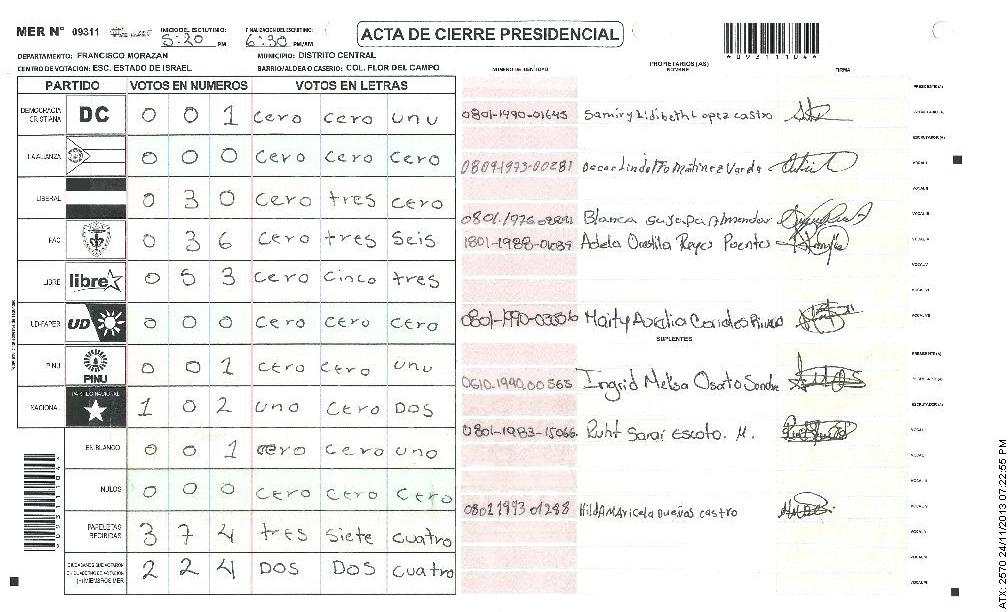 MER N° 09311 INICIO DEL ESCRUTINIO: 5:20 PM FINALIZACION DEL ESCRUTINIO: 6:30 PM/AM ACTA DE CIERRE PRESIDENCIAL
DEPARTAMENTO: FRANCISCO MORAZAN MUNICIPIO: DISTRITO CENTRAL
CENTRO DE VOTACION: ESC. ESTADO DE ISRAEL BARRIO/ALDEA O CASERIO: COL. FLOR DEL CAMPO
NUMERO DE IDENTIDAD PROPIETARIOS (AS) NOMBRE FIRMA
PARTIDO VOTOS EN NUMEROS VOTOS EN LETRAS
DEMOCRACIA CRISTIANA DC 0 0 1 cero cero uno
LA ALIANZA 0 0 0 cero cero cero
LIBERAL 0 3 0 cero tres cero
PAC 0 3 6 cero tres seis
LIBRE libre 0 5 3 cero cinco tres
UD-FAPER UD 0 0 0 cero cero cero
PINU PINU 0 0 1 cero cero uno
NACIONAL PARTIDO NACIONAL 1 0 2 uno cero DOS
EN BLANCO 0 0 1 cero cero uno
NULOS 0 0 0 cero cero cero
PAPELETAS RECIBIDAS 3 7 4 tres siete cuatro
CIUDADANOS QUE VOTARON EN CUADERNO DE VOTACION (+) MIEMBROS MER 2 2 4 DOS DOS cuatro
0801-1990-01645 Lopez castro
0809-1973-00281
Blanca
1801-1988-01039 Adela Reyes
SUPLENTES
0610.1990.00565 Ingrid
0801-1983-15066. Ruht Sarai Escoto. M.
0802 1993 01288 Hilda Maricela Dueñas castro
ATX: 2570 24/11/2013 07:22:55 PM